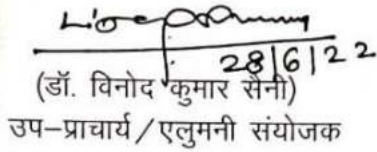 28/6/22
(डॉ. विनोद कुमार सैनी)
उप-प्राचार्य/एलुमनी संयोजक